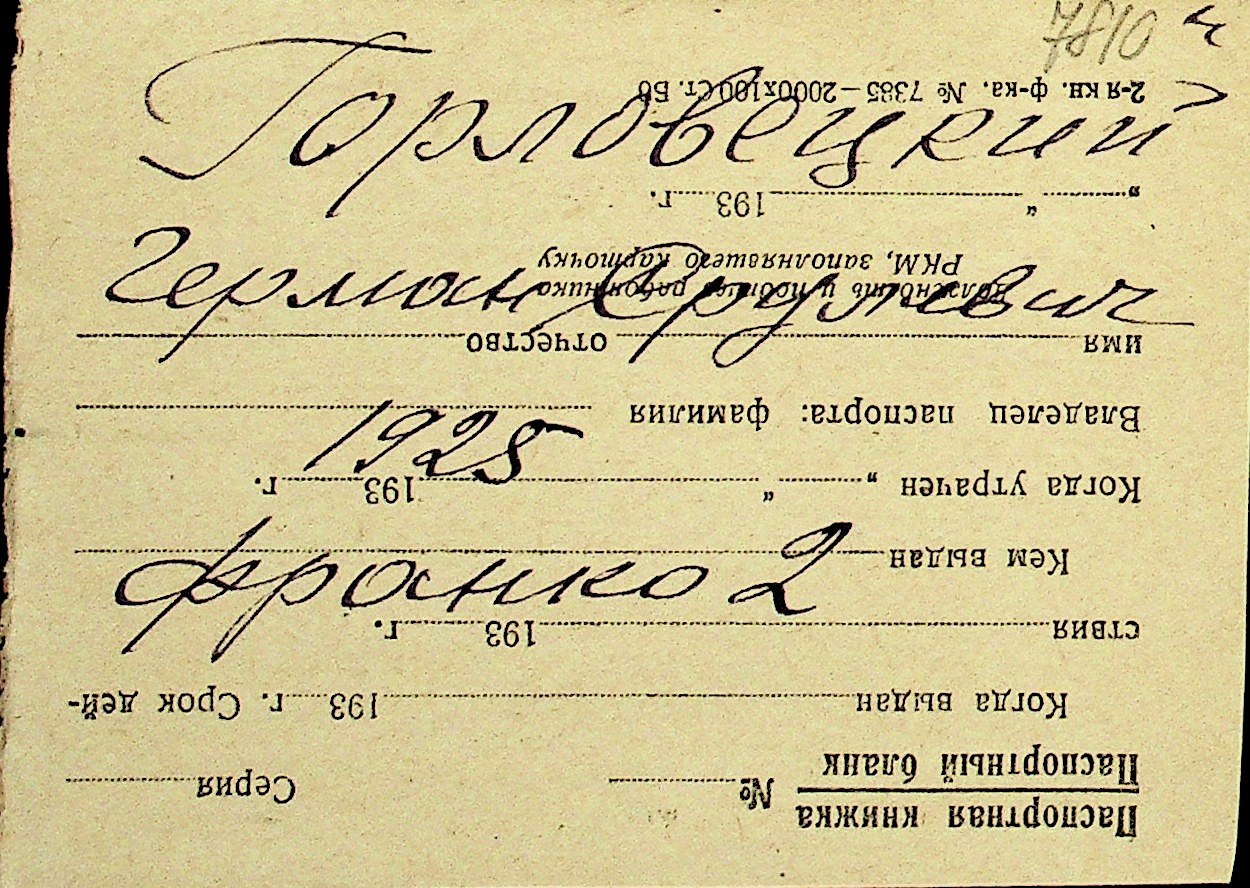 7810
Горловецкий
Герман Срулевич
1925
Франко 2
Паспортная книжка
Паспортный бланк
№ Серия
Когда выдан 193 г. Срок дей-
ствия 193 г.
Кем выдан
Когда утрачен „ “ 193 г.
Владелец паспорта: фамилия
имя отчество
Должность и подпись работника
РКМ, заполнявшего карточку
„ “ 193 г.
2-я кн. ф-ка. № 7385—2000х100 Ст. Б6